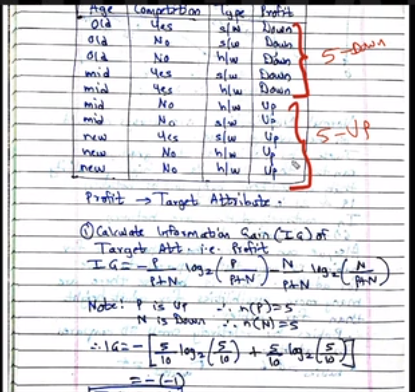 Age Competition Type Profit
Old Yes s/w Down
Old No s/w Down
Old No h/w Down
mid Yes s/w Down
mid Yes h/w Down
mid No h/w Up
mid No s/w Up
new Yes s/w Up
new No h/w Up
new No h/w Up
5-Down
5-Up
Profit → Target Attribute.
① Calculate Information Gain (IG) of
Target Att. i.e. Profit
IG = -P/P+N log₂(P/P+N) - N/P+N log₂(N/P+N)
Note: P is Up ∴ n(P)=5
N is Down ∴ n(N)=5
∴ IG = -[5/10 log₂(5/10) + 5/10 log₂(5/10)]
= -(-1)